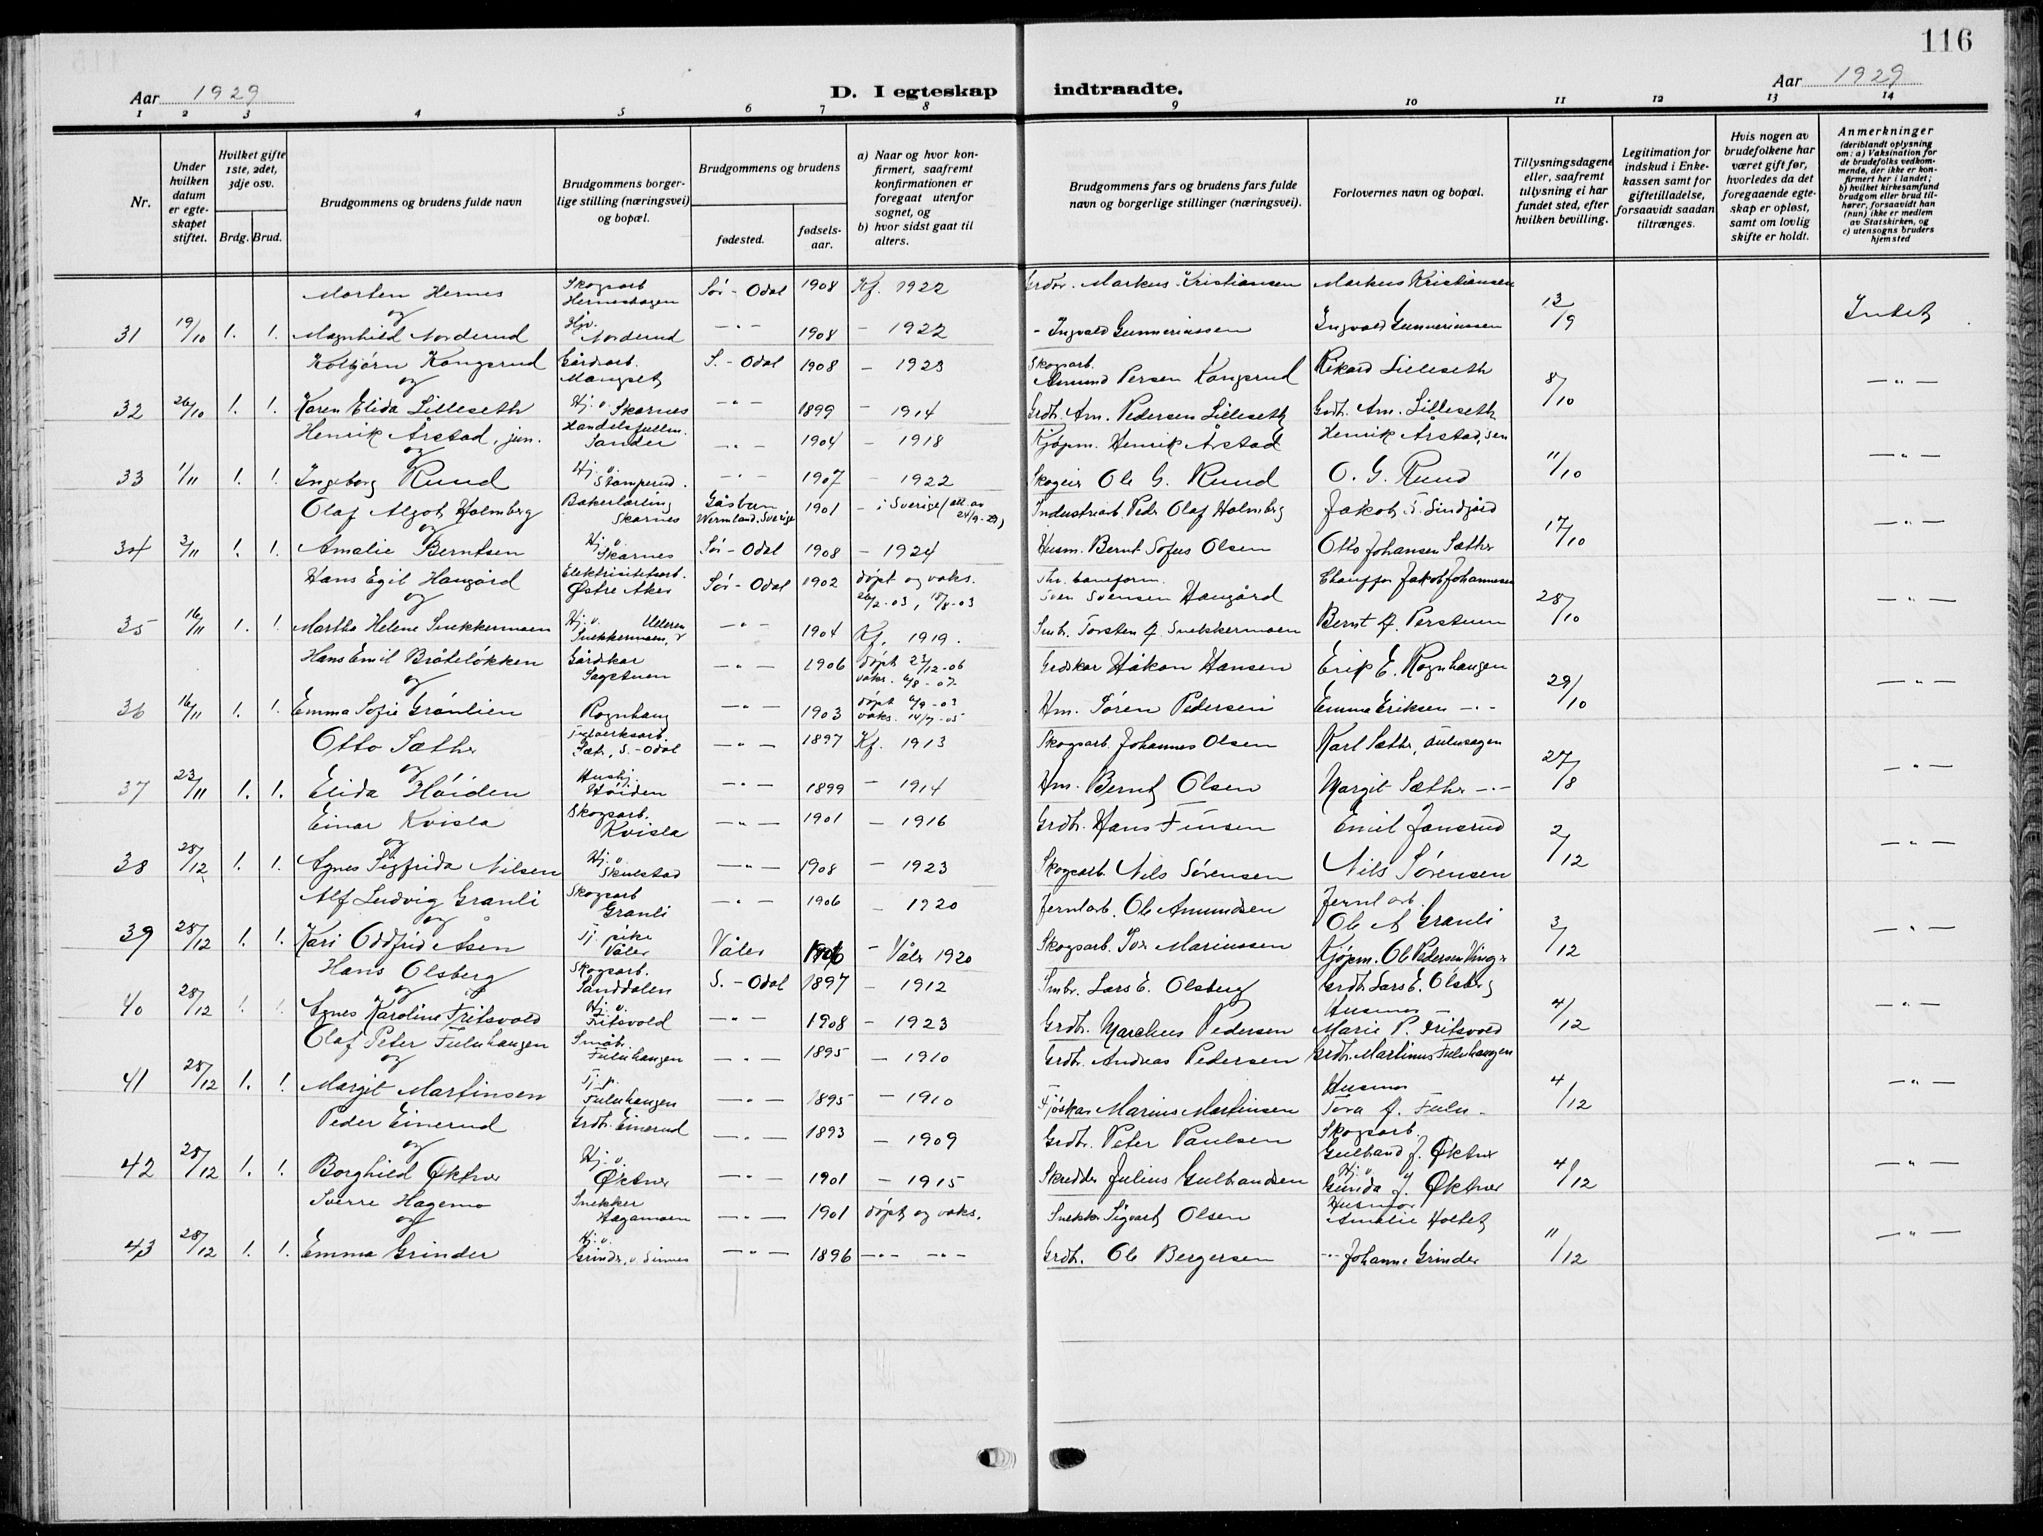 116
Aar 1929
D. I egteskap indtraadte.
Aar 1929
1 2 3 4 5 6 7 8 9 10 11 12 13 14
Nr.
Under hvilken datum er egteskapet stiftet.
Hvilket gifte 1ste, 2det, 3dje osv.
Brdg. Brud.
Brudgommens og brudens fulde navn
Brudgommens borgerlige stilling (næringsvei) og bopæl.
Brudgommens og brudens
fødested.
fødselsaar.
a) Naar og hvor konfirmert, saafremt konfirmationen er foregaat utenfor sognet, og
b) hvor sidst gaat til alters.
Brudgommens fars og brudens fars fulde navn og borgerlige stillinger (næringsvei).
Forlovernes navn og bopæl.
Tillysningsdagene eller, saafremt tillysning ei har fundet sted, efter hvilken bevilling.
Legitimation for indskud i Enkekassen samt for giftetilladelse, forsaavidt saadan tiltrænges.
Hvis nogen av brudefolkene har været gift før, hvorledes da det foregaaende egteskap er opløst, samt om lovlig skifte er holdt.
Anmerkninger
(deriblandt oplysning om: a) Vaksination for de brudefolks vedkommende, der ikke er konfirmert her i landet; b) hvilket kirkesamfund brudgom eller brud tilhører, forsaavidt han (hun) ikke er medlem av Statskirken, og c) utensogns bruders hjemsted
Morten Hernes Skogsarb Herneshagen Sør-Odal 1908 Kf. 1922 Grdbr. Markus Kristiansen Markus Kristiansen
og
31 19/10 1. 1. Magnhild Norderud Hjv. Norderud -"- 1908 - 1922 - Ingvald Gunneriussen Ingvald Gunneriussen 13/9 Intet
Kolbjørn Kongsrud Gårdsarb. Mangset S.-Odal 1908 - 1923 Skogsarb. Amund Persen Kongsrud Rikard Lilleseth
og
32 26/10 1. 1. Karen Elida Lilleseth Hj. v. Skarnes -"- 1899 - 1914 Grdb. Am. Pedersen Lilleseth Grdb. Am. Lilleseth 8/10 -"-
Henrik Årstad, jun. Handelsfullm. Sander -"- 1904 - 1918 Kjøpm. Henrik Årstad Henrik Årstad, sen
og
33 1/11 1. 1. Ingeborg Ruud Hj. v. Stomperud -"- 1907 - 1922 Skogeier Ole G. Ruud O. G. Ruud 11/10 -"-
Olaf Algot Holmberg Bakerlærling Skarnes Gåsbun Wermland, Sverige 1901 - i Sverige (att. av 24/9-29) Industriarb. Peder Olaf Holmberg Jakob T. Lindgård
og
34 3/11 1. 1. Amalie Berntsen Hj. v. Skarnes Sør-Odal 1908 - 1924 Husm. Bernt Sofus Olsen Otto Johansen Sæther 17/10 -"-
Hans Egil Haugård Elektrisitetsarb. Østre Aker Sør-Odal 1902 døpt og vaks. 26/2-03, 18/8-03 Sven Svensen Haugård Chauffør Jakob Johannesen
og
35 16/11 1. 1. Martha Helene Snekkermoen Hj. v. Snekkermoen, Ulleren -"- 1904 Kf. 1919. Smbr. Torsten A. Snekkermoen Bernt A. Perstuen 28/10 -"-
Hans Emil Bråteløkken Gårdskar Sagstuen -"- 1906 døpt 23/12-06 vaks. 6/8-07 Gardskar Håkon Hansen Erik E. Rognhaugen
og
36 16/11 1. 1. Emma Sofie Grønlien Rognhaug -"- 1903 døpt 6/9-03 vaks. 14/7-05 Hm. Søren Pedersen Emma Eriksen -"- 29/10 -"-
Otto Sæther Teglverksarb. Sæt., S.-Odal -"- 1897 Kf. 1913 Skogsarb. Johannes Olsen Karl Sæther,
og
37 23/11 1. 1. Elida Høiden Hushj. Høiden -"- 1899 - 1914 Hm. Bernt Olsen Margit Sæther -"- 27/8 -"-
Einar Kvisla Skogsarb. Kvisla -"- 1901 - 1916 Grdbr. Hans Finsen Emil Jansrud
og
38 28/12 1. 1. Agnes Sigfrida Nilsen Hj. v. Skulstad -"- 1908 - 1923 Skogsarb. Nils Sørensen Nils Sørensen 2/12 -"-
Alf Ludvig Granli Skogsarb Granli -"- 1906 - 1920 Jernb.arb. Ole Amundsen Jernb.arb. Ole A Granli
og
39 28/12 1. 1. Kari Oddfrid Åsen Tj. pike Våler Våler 1906 - Våler 1920 Skogsarb. Iver Mariussen Kjøpm. Ole Pedersen Vinger 3/12 -"-
Hans Olsberg Skogsarb. Sanddalen S.-Odal 1897 - 1912 Smbr. Lars E. Olsberg Grdb. Lars E. Olsberg
og
40 28/12 1. 1. Agnes Karoline Fritsvold Hj. v. Fritsvold -"- 1908 - 1923 Grdb. Markus Pedersen Husmor Marie P. Fritsvold 4/12 -"-
Olaf Peter Fuluhaugen Småb. Fuluhaugen -"- 1895 - 1910 Grdb. Andreas Pedersen Grdb. Martinus Fuluhaugen
og
41 28/12 1. 1. Margit Martinsen Tj. p. Fuluhaugen -"- 1895 - 1910 Fjøskar Marius Martinsen Husmor Tora A. Fulu- 4/12 -"-
Peder Einerud Grdb. Einerud -"- 1893 - 1909 Grdb. Peter Paulsen Skogsarb. Gulbrand J. Øktner
og
42 28/12 1. 1. Borghild Øktner Hj. v. Øktner -"- 1901 - 1915 Skredder Julius Gulbrandsen Hj. v. Gunda J. Øktner 4/12 -"-
Sverre Hagemo Snekker Hagamoen -"- 1901 døpt og vaks. Snekker Sigvart Olsen Husmor Amalie Holtet
og
43 28/12 1. 1. Emma Grinder Hj. v. Grinder, v. Sinnes -"- 1896 -"- -"- Grdb. Ole Bergersen -"- Johanne Grinder 11/12 -"-